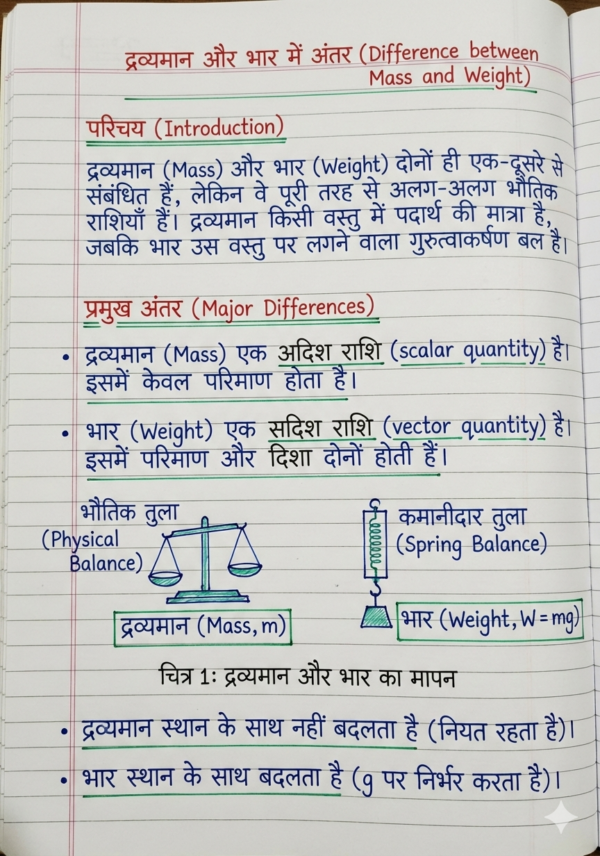 द्रव्यमान और भार में अंतर (Difference between
Mass and Weight)
परिचय (Introduction)
द्रव्यमान (Mass) और भार (Weight) दोनों ही एक-दूसरे से
संबंधित हैं, लेकिन वे पूरी तरह से अलग-अलग भौतिक
राशियाँ हैं। द्रव्यमान किसी वस्तु में पदार्थ की मात्रा है,
जबकि भार उस वस्तु पर लगने वाला गुरुत्वाकर्षण बल है।
प्रमुख अंतर (Major Differences)
• द्रव्यमान (Mass) एक अदिश राशि (scalar quantity) है।
इसमें केवल परिमाण होता है।
• भार (Weight) एक सदिश राशि (vector quantity) है।
इसमें परिमाण और दिशा दोनों होती हैं।
भौतिक तुला
(Physical
Balance)
द्रव्यमान (Mass, m)
कमानीदार तुला
(Spring Balance)
भार (Weight, W = mg)
चित्र 1: द्रव्यमान और भार का मापन
• द्रव्यमान स्थान के साथ नहीं बदलता है (नियत रहता है)।
• भार स्थान के साथ बदलता है (g पर निर्भर करता है)।